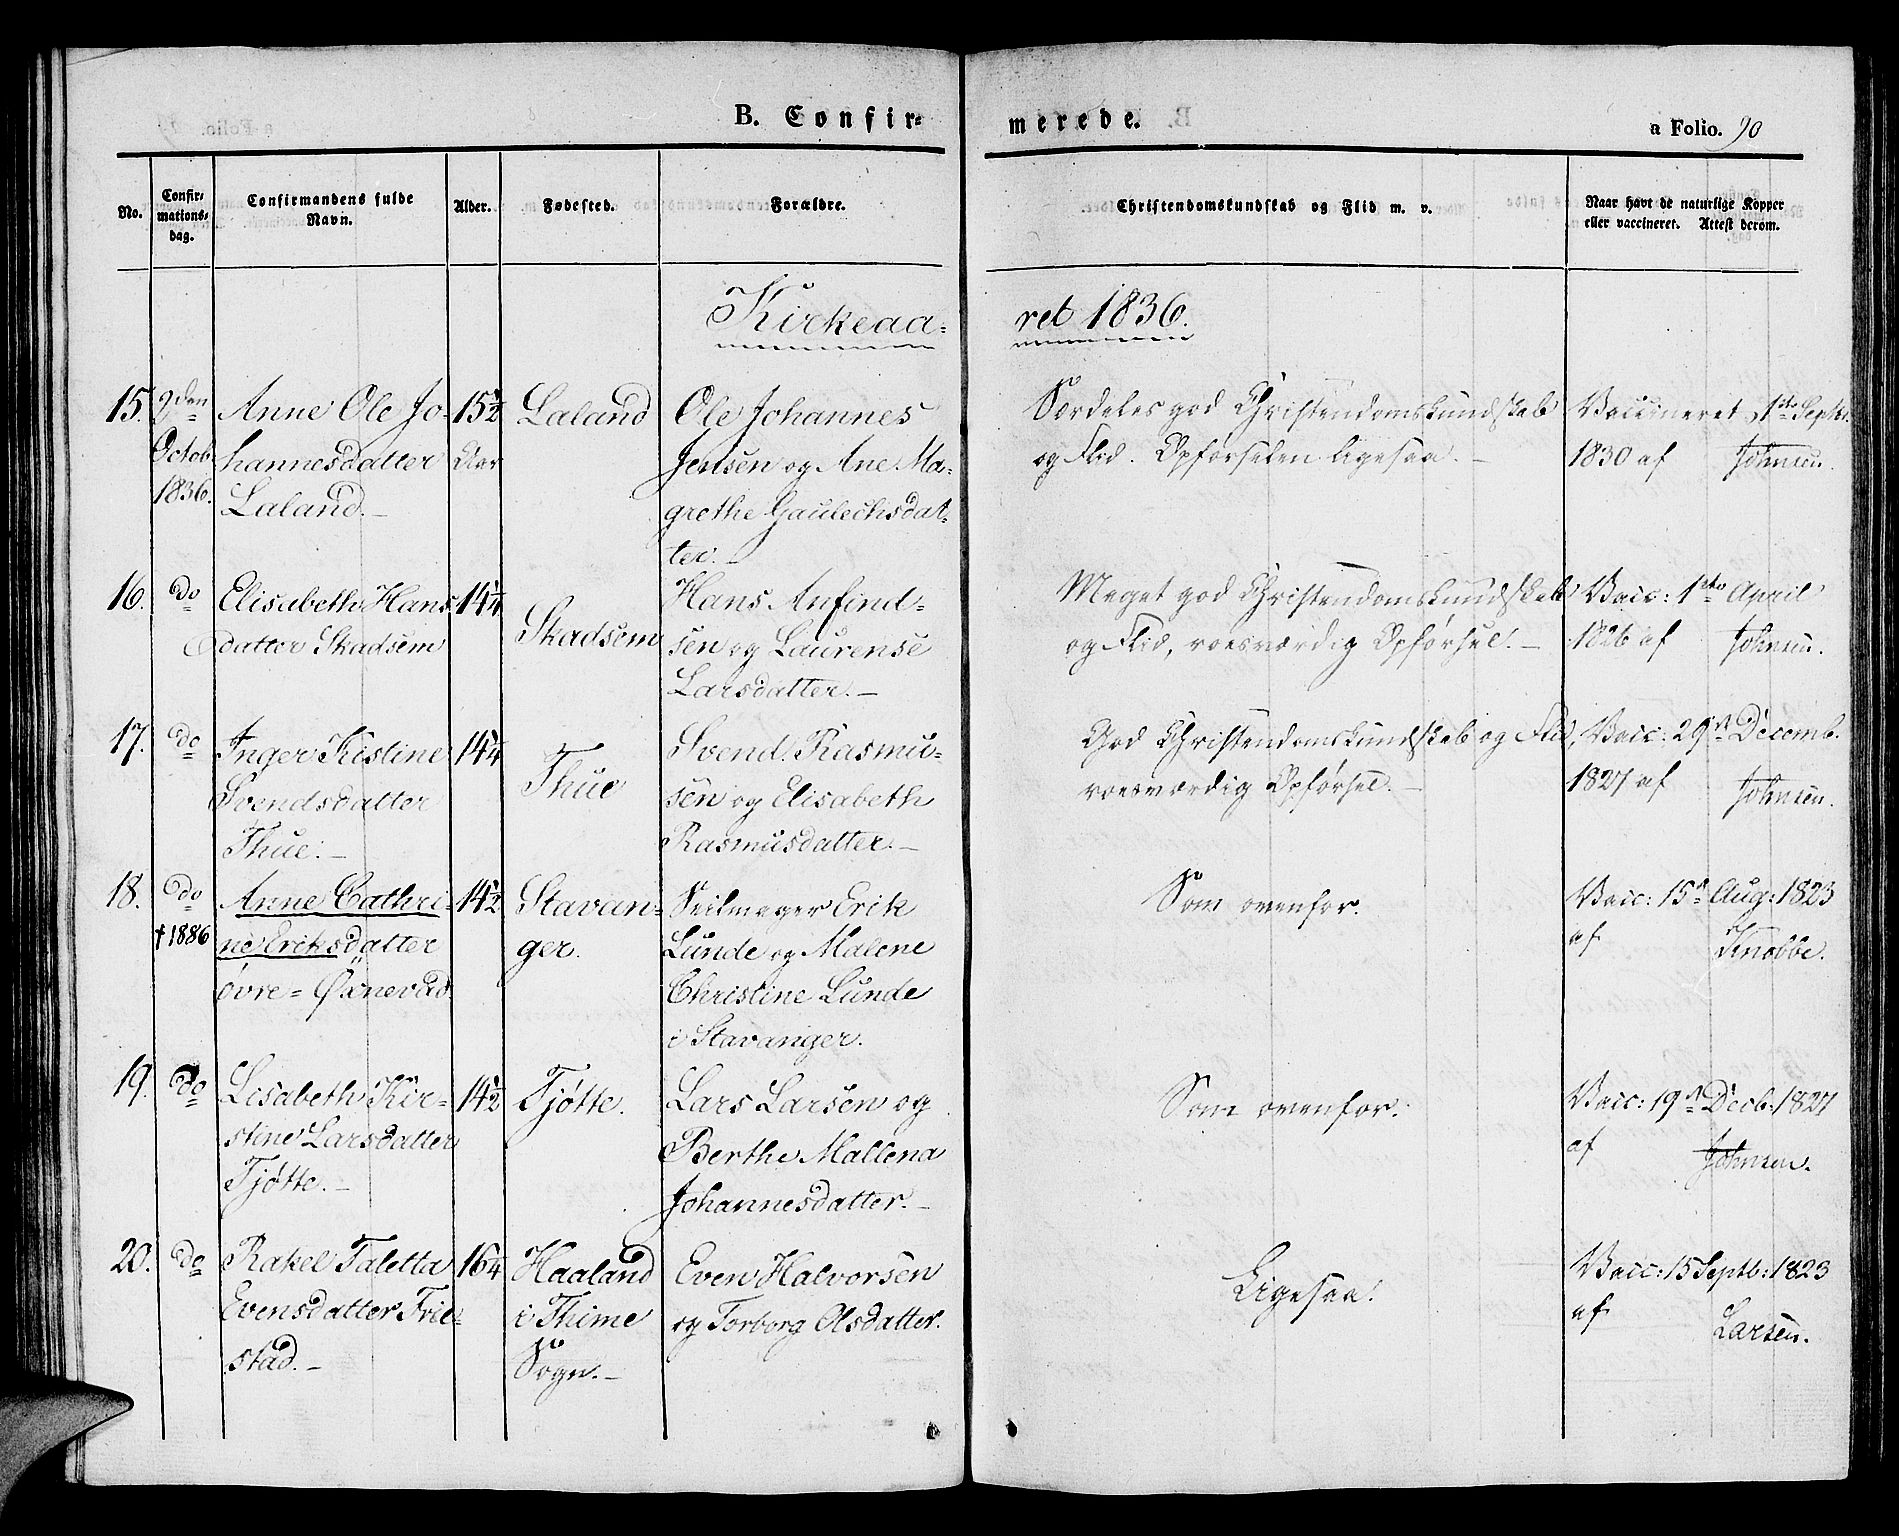 B. Confir=
merede.
a Folio. 90
No.
Confir=
mations=
dag.
Confirmandens fulde
Navn.
Alder.
Fødested.
Forældre.
Christendomskundskab og Flid m. v.
Naar havt de naturlige Kopper
eller vaccineret. Attest derom.
Kirkeaa=
ret 1836.
15.
2den
Octob.
1836.
Anne Ole Jo-
hannesdatter
Laland.-
15½
Aar
Laland
Ole Johannes
Jensen og Ane Ma=
grethe Gaulechsdat=
ter.-
Særdeles god Christendomskundskab
og Flid. Opførselen ligesaa.-
Vaccineret 1ste Septbr.
1830 af Johnsen.
16.
do
Elisabeth Hans
datter Skadsem
14¼
Skadsem
Hans Anfind=
sen og Laurense
Larsdatter.-
Meget god Christendomskundskab
og Flid, roesværdig Opførsel.-
Vacc: 1ste April
1826 af Johnsen.
17.
do
Inger Kistine
Svendsdatter
Thue.-
14¼
Thue
Svend Rasmu=
sen og Elisabeth
Rasmusdatter.-
God Christendomskundskab og Flid,
roesværdig Opførsel.-
Vacc: 29de Decemb.
1827 af Johnsen.
18.
do
†1886
Anne Cathri-
ne Eriksdatter
øvre=Øxnevad
14½
Stavan=
ger.
Seilmager Erik
Lunde og Malene
Christine Lunde
i Stavanger.
Som ovenfor.
Vacc: 15de Aug: 1823
af Knobbe.
19.
do
Lisabeth Kir=
stine Larsdatter
Tjøtte.-
14½
Tjøtte.
Lars Larsen og
Berthe Mallena
Johannesdatter.-
Som ovenfor.
Vacc: 19de Decb: 1827
af Johnsen.
20.
do
Rakel Taletta
Evensdatter Frie=
stad.-
16¼
Haaland
i Thime
Sogn.-
Even Halvorsen
og Torborg Olsdatter.
Ligesaa.
Vacc: 15 Septb: 1823
af Larsen.